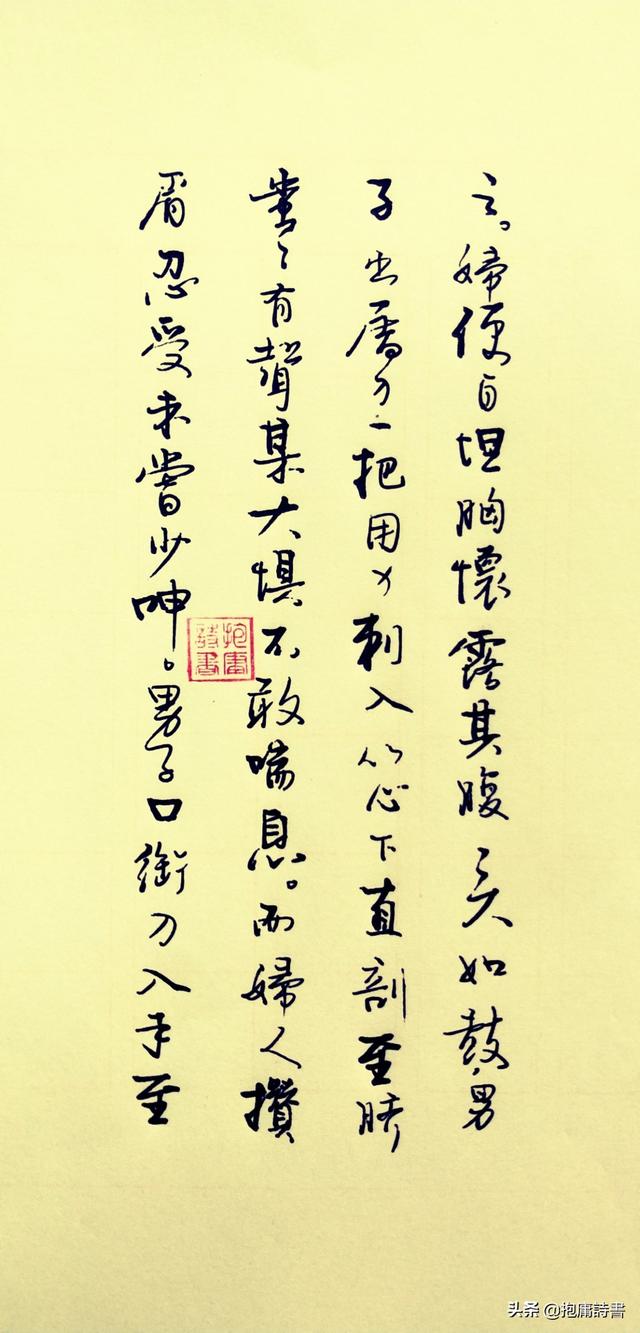 之。婦便自坦胸懷露其腹之大如鼓。男
子出屠刀一把用力刺入從心下直剖至臍
蚩々有聲某大惧。不敢喘息。而婦人攢
眉忍受未嘗少呻。男子口銜刀入手至
抱庸詩書
头条 @抱庸詩書